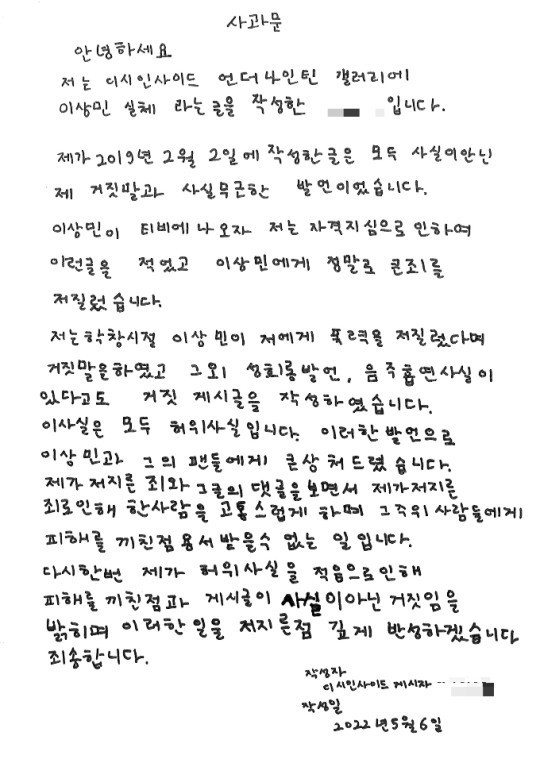 사과문
안녕하세요
저는 디시인사이드 언더나인틴 갤러리에
이상민 실체 라는글을 작성한 입니다.
제가 2019년 2월 2일에 작성한글은 모두 사실이안닌
제 거짓말과 사실무근한 발언이었습니다.
이상민이 티비에나오자 저는 자격지심으로 인하여
이런글을 적었고 이상민에게 정말로 큰죄를
저질렀습니다.
저는학창시절 이상민이 저에게 폭력을 저질렀다며
거짓말을하였고 그외 성희롱발언, 음주흡연사실이
있다고도 거짓 게시글을 작성하였습니다.
이사실은 모두 허위사실입니다. 이러한발언으로
이상민과 그의 팬들에게 큰상처드렸습니다.
제가저지른 죄와 그글의 댓글을보면서 제가저지른
죄로인해 한사람을 고통스럽게 하며 그주위사람들에게
피해를 끼친점용서받을수 없는 일입니다.
다시한번 제가 허위사실을 적음으로인해
피해를 끼친점과 게시글이 사실이아닌 거짓임을
밝히며 이러한일을 저지른점 깊게 반성하겠습니다
죄송합니다.
작성자
디시인사이드 게시자
작성일
2022년5월6일